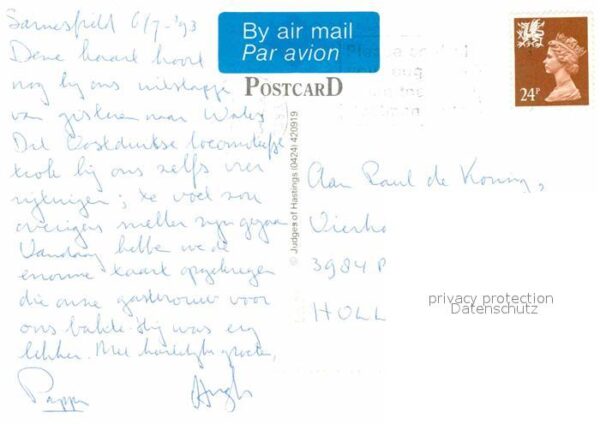 Sarnesfield 6/7-'93
Deze kaart hoort
nog bij ons uitstapje
van gisteren naar Wales
Dit Oostduitse locomotiefje
trok bij ons zelfs vier
rijtuigen; te voet zou
overigens sneller zijn gegaan
Vandaag hebben we de
enorme taart opgekregen
die onze gastvrouw voor
ons bakte. Hij was erg
lekker. Met hartelijke groeten,
Pappa Hugh
By air mail
Par avion
POSTCARD
24P
© Judges of Hastings (0424) 420919
Aan Paul de Koning,
Vierho
3984 P
HOLL
privacy protection
Datenschutz